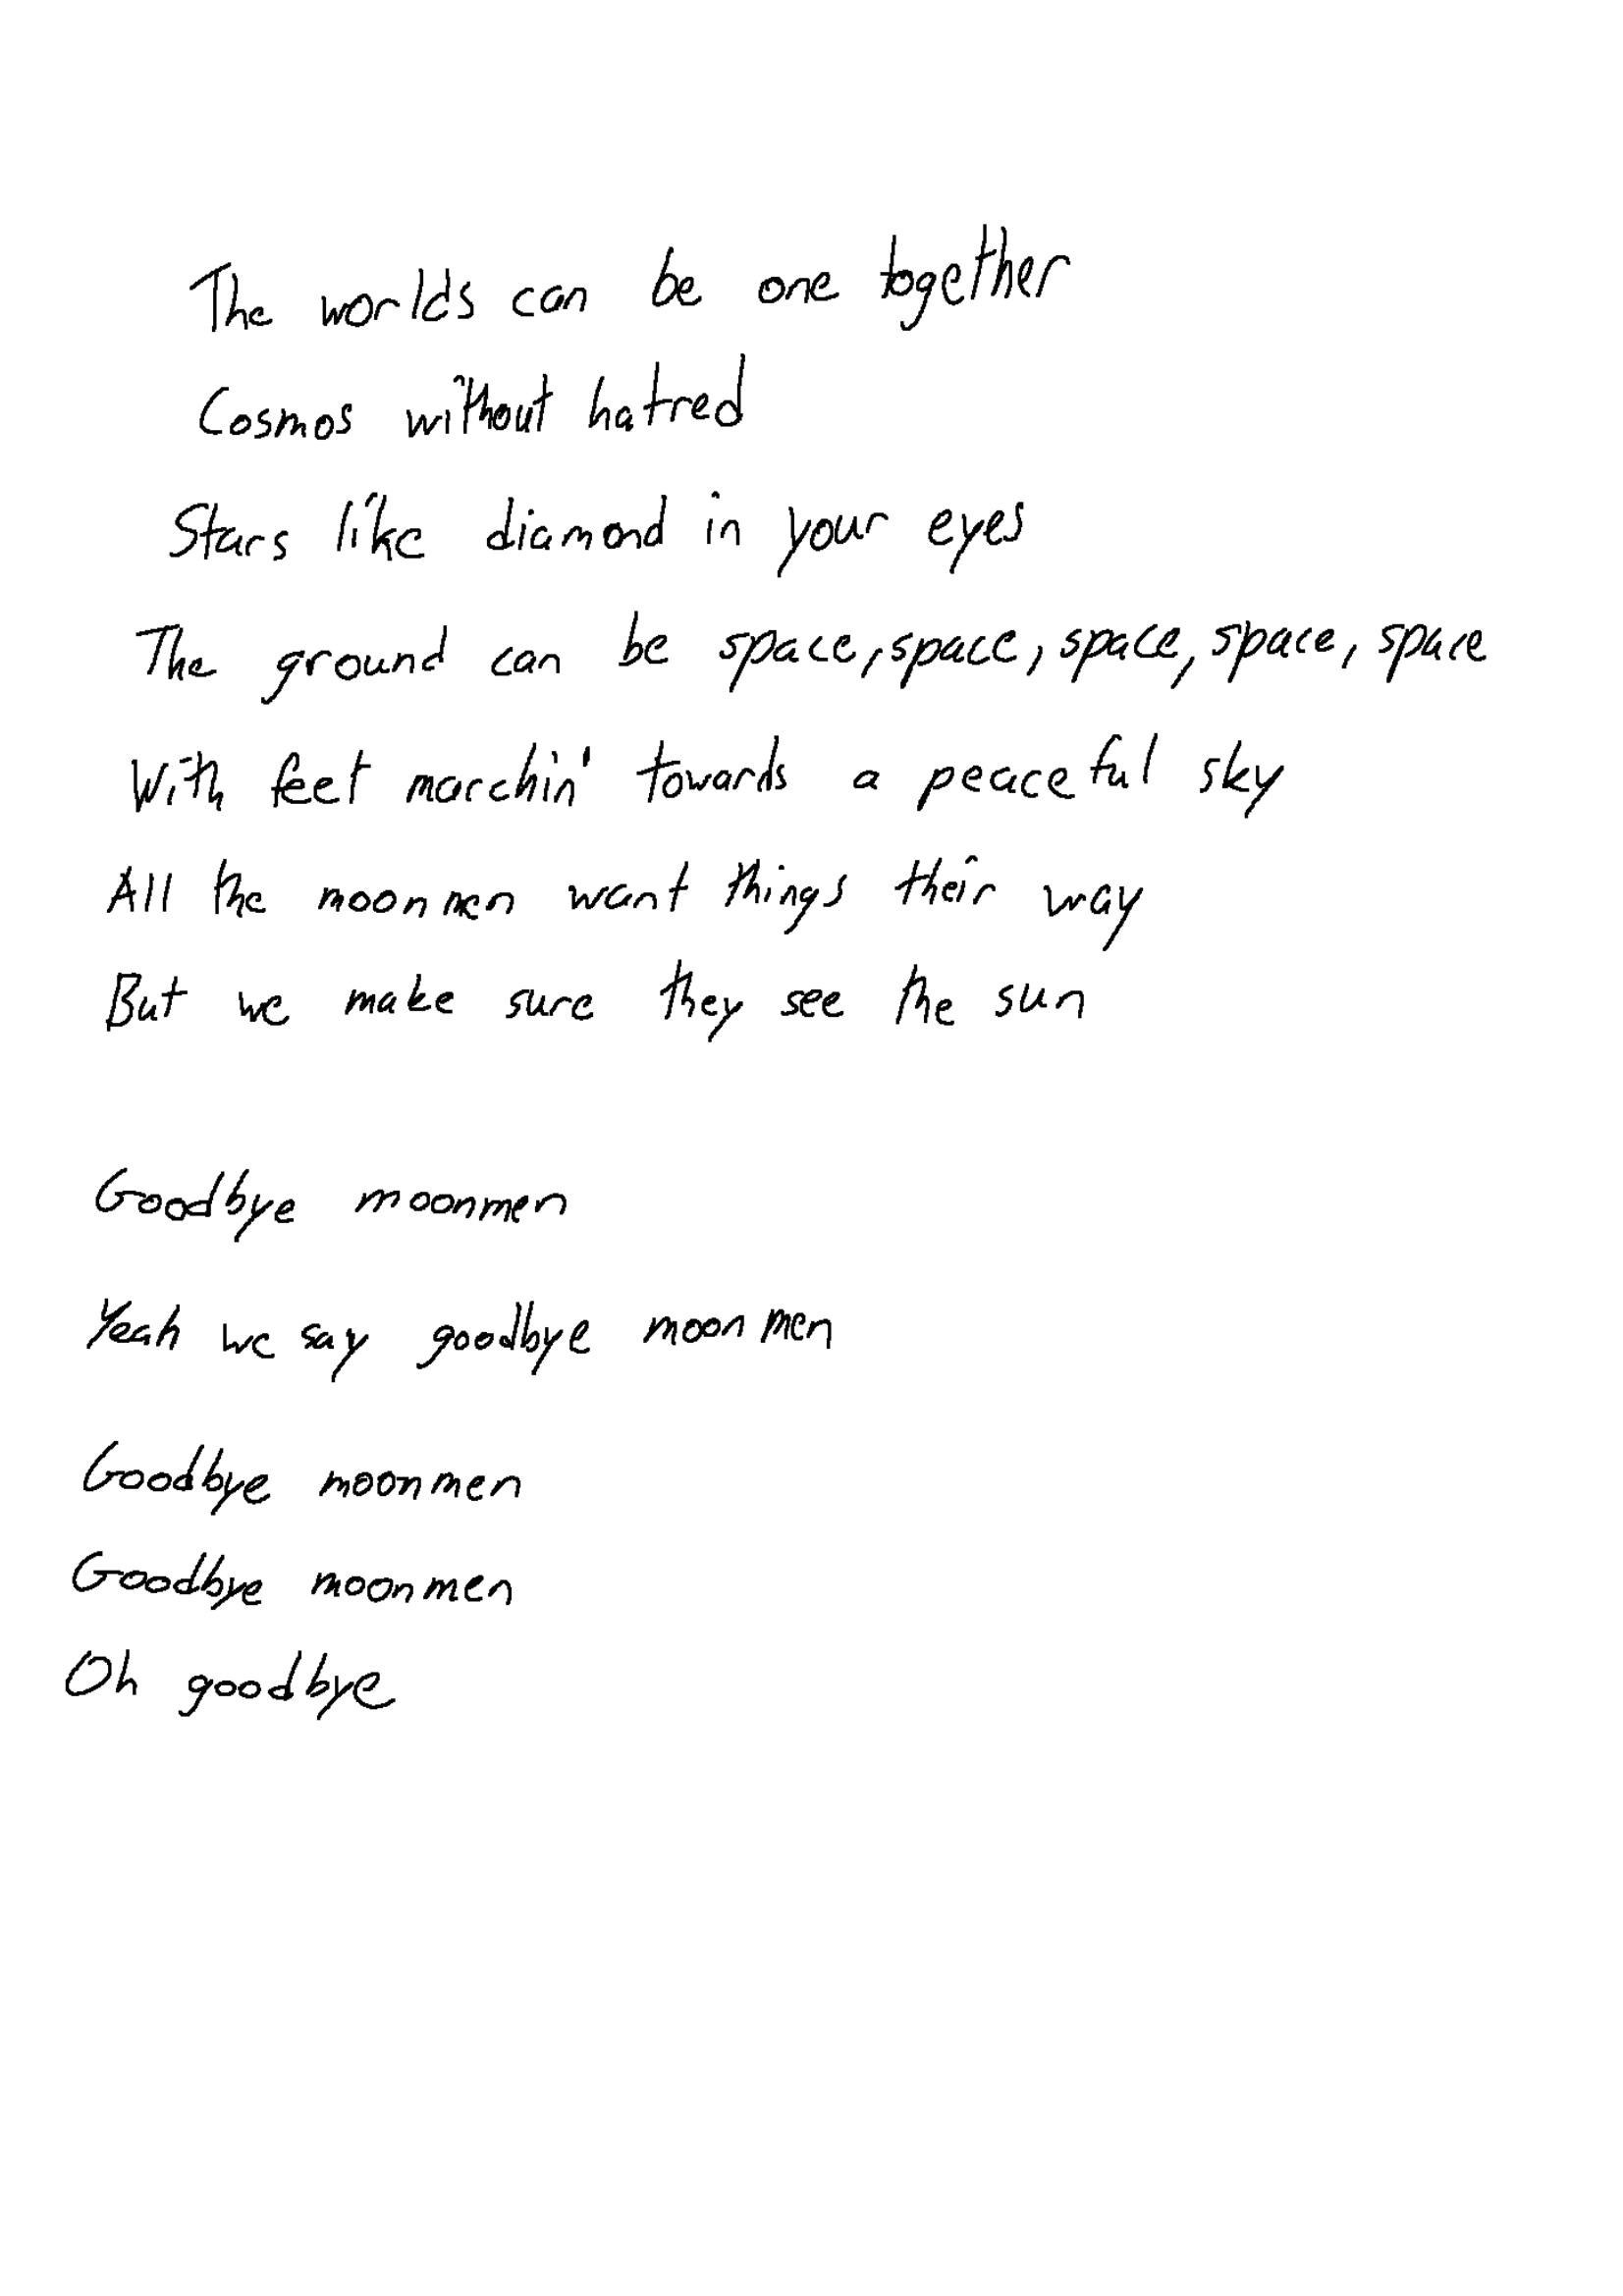 The worlds can be one together
Cosmos without hatred
Stars like diamond in your eyes
The ground can be space, space, space, space, space
With feet marchin' towards a peaceful sky
All the moonmen want things their way
But we make sure they see the sun
Goodbye moonmen
Yeah we say goodbye moonmen
Goodbye moonmen
Goodbye moonmen
Oh goodbye